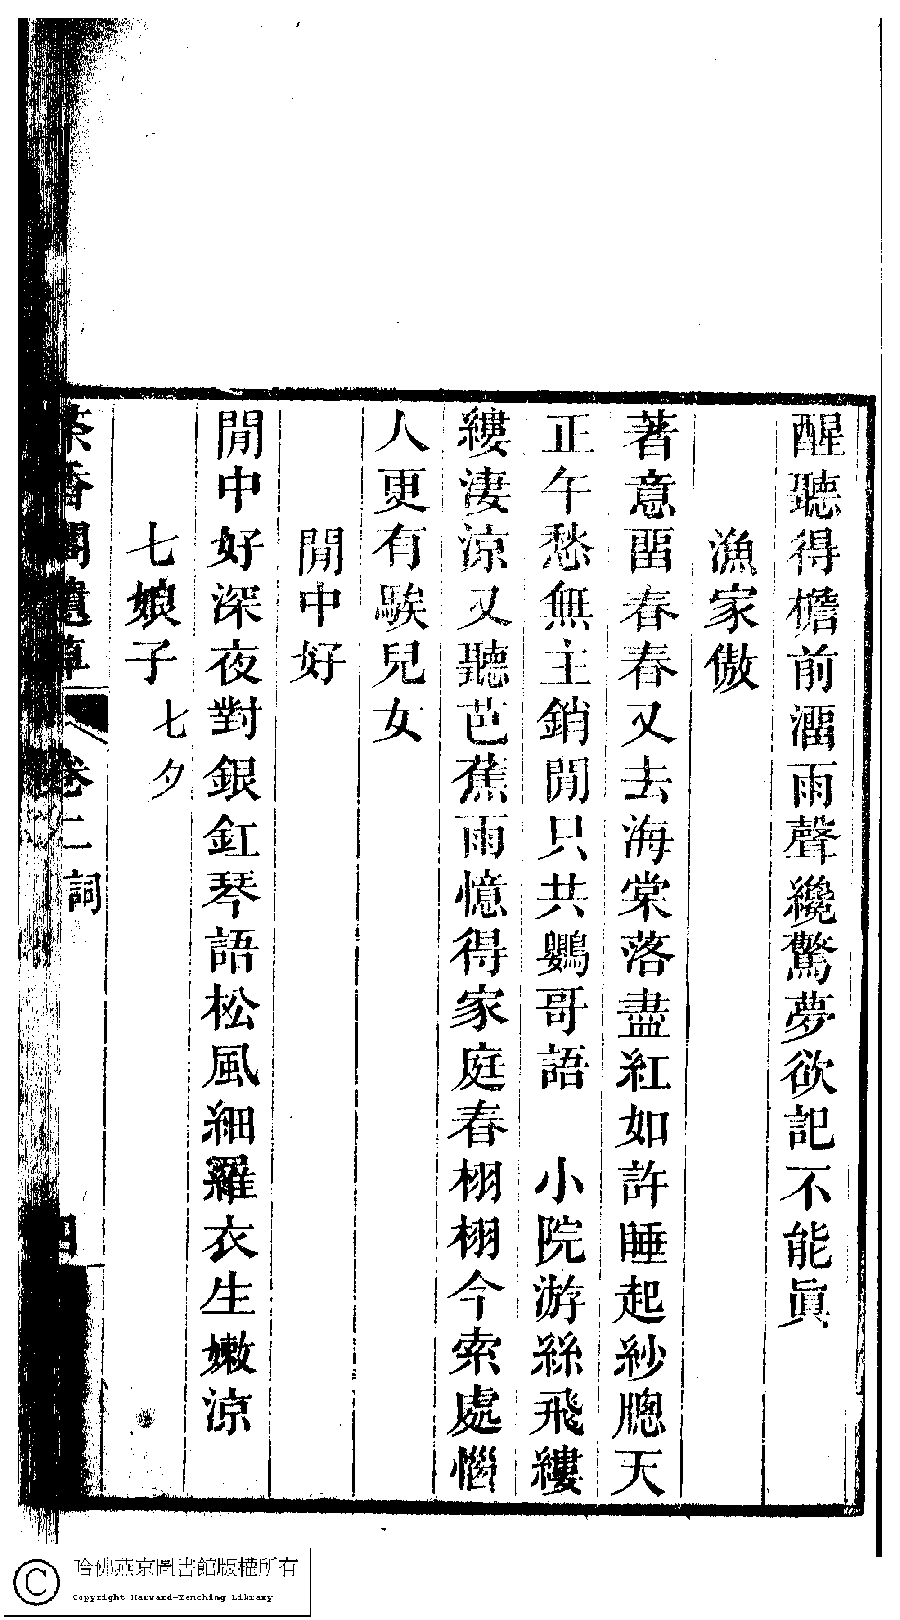 醒聽得檐前澑雨聲纔驚夢欲記不能眞
漁家傲
著意畱春春又去海棠落盡紅如許睡起紗牕天
正午愁無主銷閒只共鸚哥語　小院游絲飛縷
縷淒涼又聽芭蕉雨憶得家庭春栩栩今索處惱
人更有騃兒女
閒中好
閒中好深夜對銀釭琴語松風細羅衣生嫩涼
七娘子 七夕
茶香閣遺草 卷二 詞 四
哈佛燕京圖書館版權所有
Copyright Harvard-Yenching Library